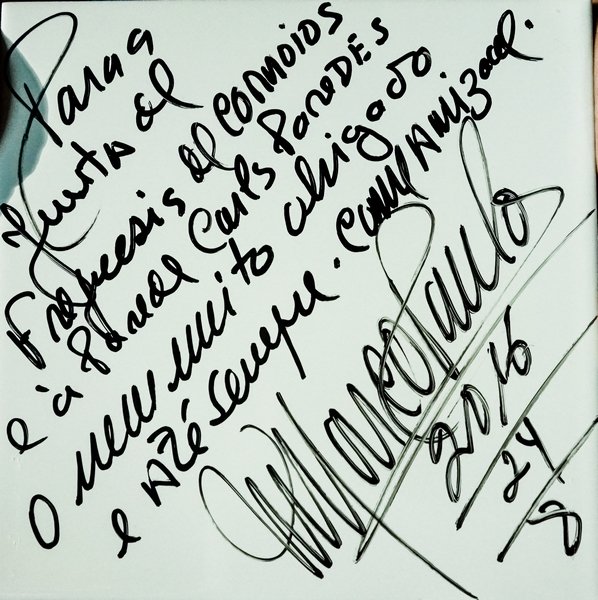 Para a
Junta de
Freguesia de CORROIOS
e à Parede Carlos PAREDES
O meu muito obrigado
e ATÉ sempre. Com Amizade.
Marco Paulo
2016
24
8